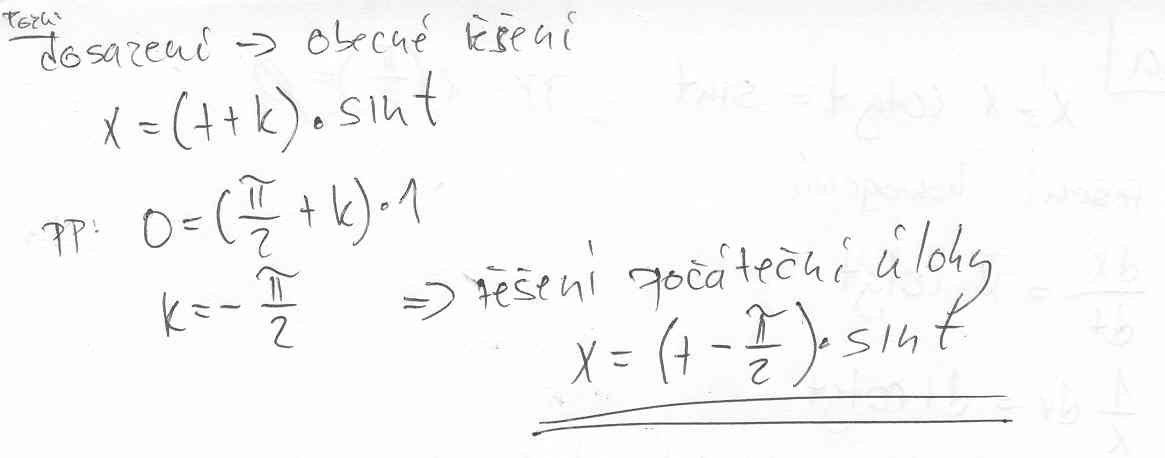 dosazení → obecné řešení
x = (t + k) · sin t
PP: 0 = (π/2 + k) · 1
k = - π/2 ⇒ řešení počáteční úlohy
x = (t - π/2) · sin t